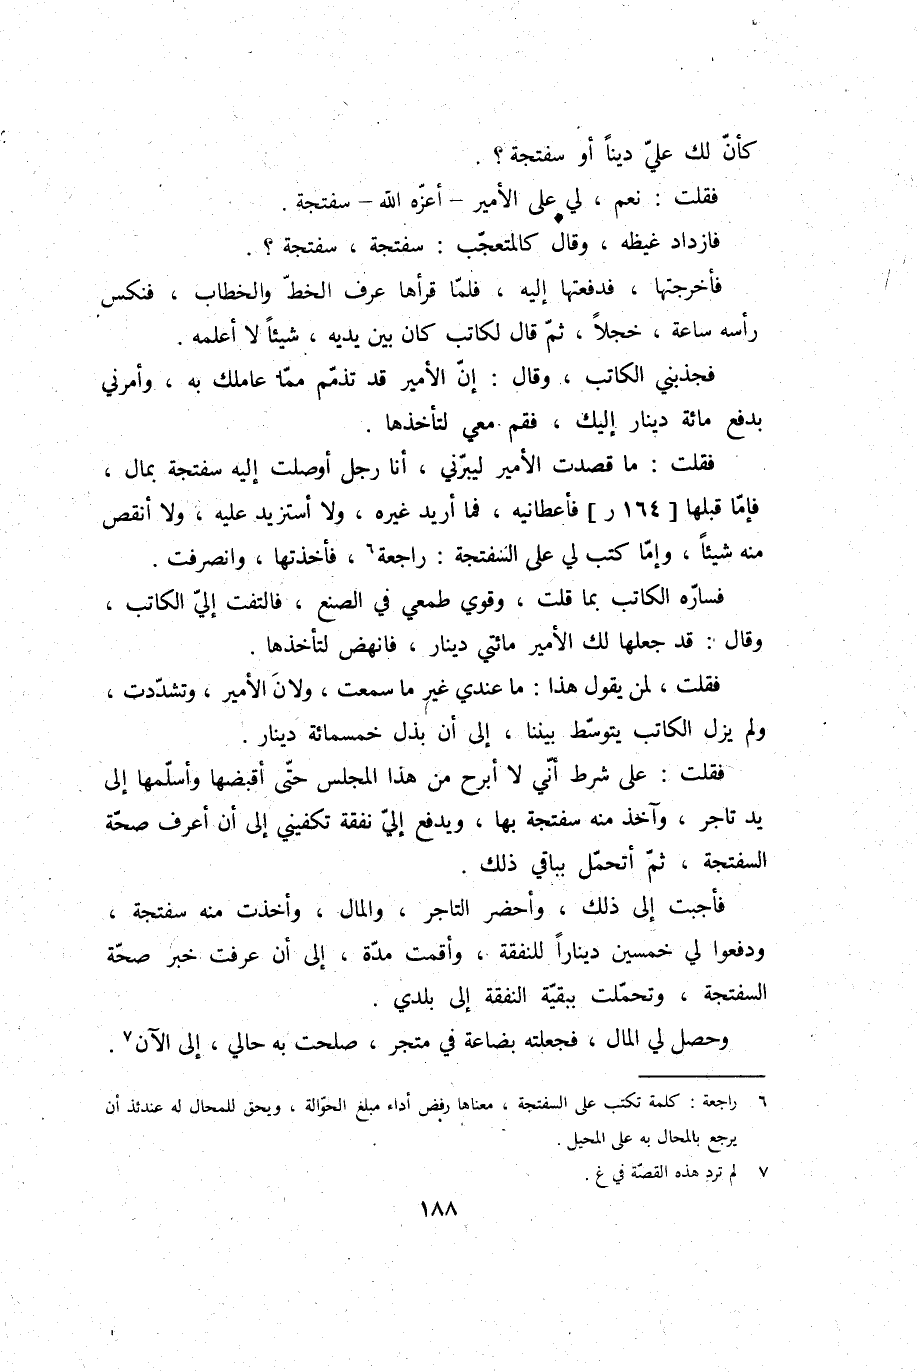 كأنّ لك عليّ ديناً أو سفتجة ؟ .
فقلت : نعم ، لي على الأمير – أعزّه الله – سفتجة .
فازداد غيظه ، وقال كالمتعجّب : سفتجة ، سفتجة ؟ .
فأخرجتها ، فدفعتها إليه ، فلمّا قرأها عرف الخطّ والخطاب ، فنكس
رأسه ساعة ، خجلاً ، ثمّ قال لكاتب كان بين يديه ، شيئاً لا أعلمه .
فجذبني الكاتب ، وقال : إنّ الأمير قد تذمّم ممّا عاملك به ، وأمرني
بدفع مائة دينار إليك ، فقم معي لتأخذها .
فقلت : ما قصدت الأمير ليبرّني ، أنا رجل أوصلت إليه سفتجة بمال ،
فإمّا قبلها [ ١٦٤ ر ] فأعطانيه ، فما أريد غيره ، ولا أستزيد عليه ، ولا أنقص
منه شيئاً ، وإمّا كتب لي على السفتجة : راجعة٦ ، فأخذتها ، وانصرفت .
فسارّه الكاتب بما قلت ، وقوي طمعي في الصنع ، فالتفت إليّ الكاتب ،
وقال : قد جعلها لك الأمير مائتي دينار ، فانهض لتأخذها .
فقلت ، لمن يقول هذا : ما عندي غير ما سمعت ، ولانَ الأمير ، وتشدّدت ،
ولم يزل الكاتب يتوسّط بيننا ، إلى أن بذل خمسمائة دينار .
فقلت : على شرط أنّي لا أبرح من هذا المجلس حتّى أقبضها وأسلّمها إلى
يد تاجر ، وآخذ منه سفتجة بها ، ويدفع إليّ نفقة تكفيني إلى أن أعرف صحّة
السفتجة ، ثمّ أتحمّل بباقي ذلك .
فأجبت إلى ذلك ، وأحضر التاجر ، والمال ، وأخذت منه سفتجة ،
ودفعوا لي خمسين ديناراً للنفقة ، وأقمت مدّة ، إلى أن عرفت خبر صحّة
السفتجة ، وتحمّلت ببقيّة النفقة إلى بلدي .
وحصل لي المال ، فجعلته بضاعة في متجر ، صلحت به حالي ، إلى الآن٧ .
٦ راجعة : كلمة تكتب على السفتجة ، معناها رفض أداء مبلغ الحوّالة ، ويحق للمحال له عندئذ أن
يرجع بالمحال به على المحيل .
٧ لم ترد هذه القصّة في غ .
١٨٨